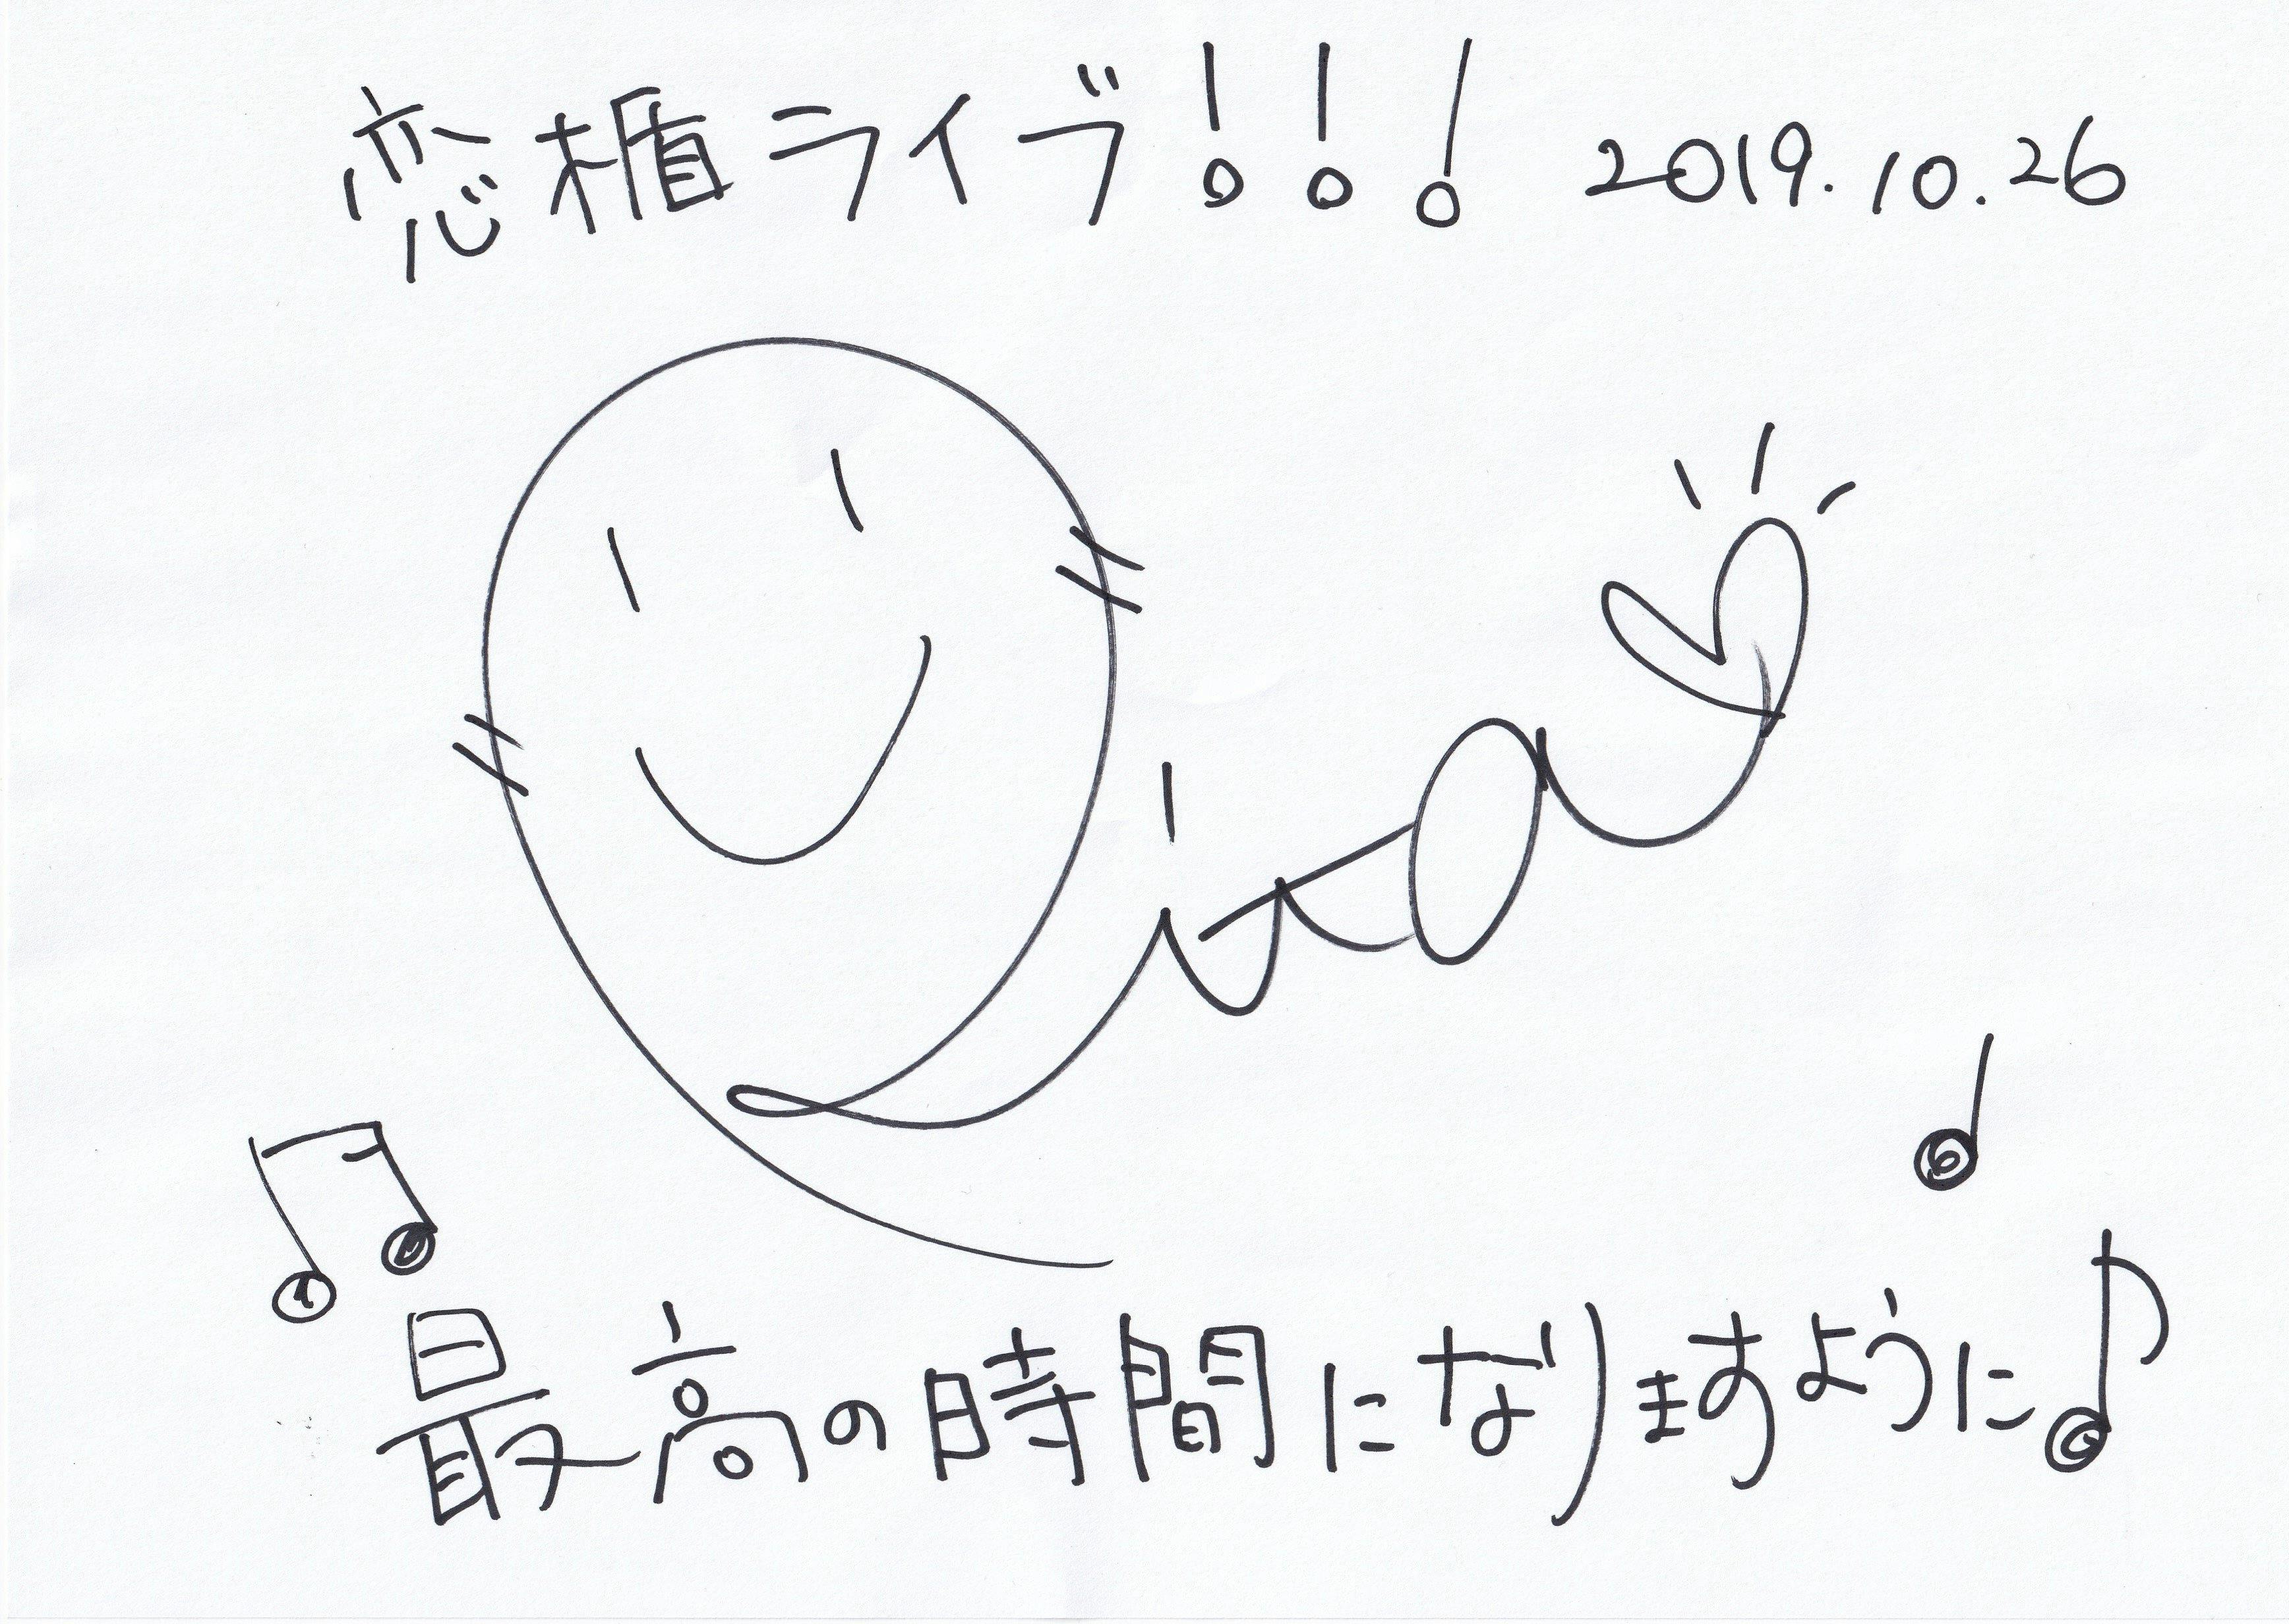 恋楯ライブ!!! 2019.10.26
最高の時間になりますように♪